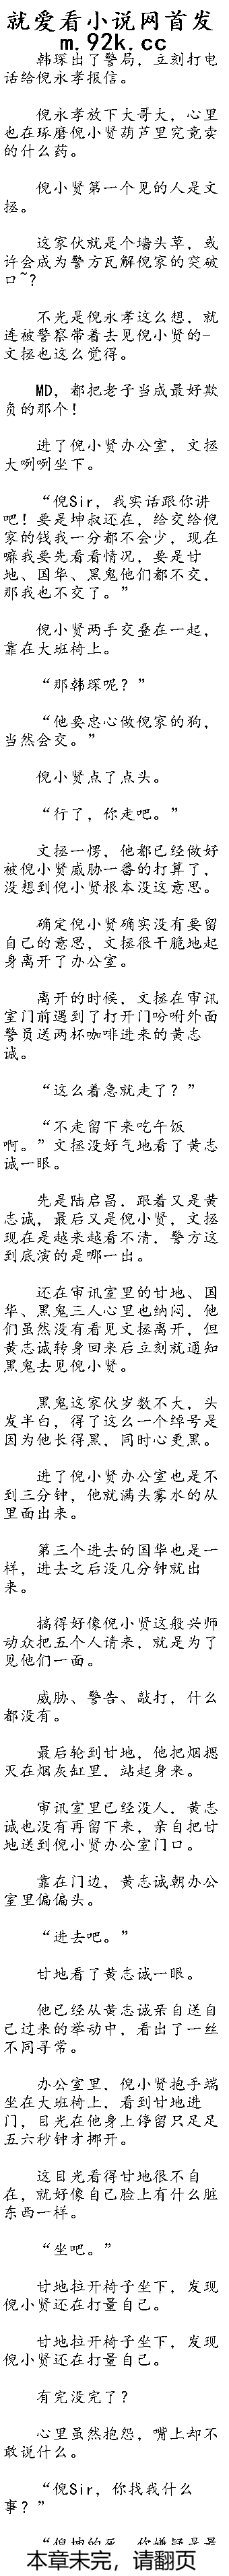 就爱看小说网首发
m.92k.cc
韩琛出了警局，立刻打电
话给倪永孝报信。
倪永孝放下大哥大，心里
也在琢磨倪小贤葫芦里究竟卖
的什么药。
倪小贤第一个见的人是文
拯。
这家伙就是个墙头草，或
许会成为警方瓦解倪家的突破
口~?
不光是倪永孝这么想，就
连被警察带着去见倪小贤的-
文拯也这么觉得。
MD，都把老子当成最好欺
负的那个！
进了倪小贤办公室，文拯
大咧咧坐下。
“倪Sir，我实话跟你讲
吧！要是坤叔还在，给交给倪
家的钱我一分都不会少，现在
嘛我要先看看情况，要是甘
地、国华、黑鬼他们都不交，
那我也不交了。”
倪小贤两手交叠在一起，
靠在大班椅上。
“那韩琛呢？”
“他要忠心做倪家的狗，
当然会交。”
倪小贤点了点头。
“行了，你走吧。”
文拯一愣，他都已经做好
被倪小贤威胁一番的打算了，
没想到倪小贤根本没这意思。
确定倪小贤确实没有要留
自己的意思，文拯很干脆地起
身离开了办公室。
离开的时候，文拯在审讯
室门前遇到了打开门吩咐外面
警员送两杯咖啡进来的黄志
诚。
“这么着急就走了？”
“不走留下来吃午饭
啊。”文拯没好气地看了黄志
诚一眼。
先是陆启昌，跟着又是黄
志诚，最后又是倪小贤，文拯
现在是越来越看不清，警方这
到底演的是哪一出。
还在审讯室里的甘地、国
华、黑鬼三人心里也纳闷，他
们虽然没有看见文拯离开，但
黄志诚转身回来后立刻就通知
黑鬼去见倪小贤。
黑鬼这家伙岁数不大，头
发半白，得了这么一个绰号是
因为他长得黑，同时心更黑。
进了倪小贤办公室也是不
到三分钟，他就满头雾水的从
里面出来。
第三个进去的国华也是一
样，进去之后没几分钟就出
来。
搞得好像倪小贤这般兴师
动众把五个人请来，就是为了
见他们一面。
威胁、警告、敲打，什么
都没有。
最后轮到甘地，他把烟摁
灭在烟灰缸里，站起身来。
审讯室里已经没人，黄志
诚也没有再留下来，亲自把甘
地送到倪小贤办公室门口。
靠在门边，黄志诚朝办公
室里偏偏头。
“进去吧。”
甘地看了黄志诚一眼。
他已经从黄志诚亲自送自
己过来的举动中，看出了一丝
不同寻常。
办公室里，倪小贤抱手端
坐在大班椅上，看到甘地进
门，目光在他身上停留只足足
五六秒钟才挪开。
这目光看得甘地很不自
在，就好像自己脸上有什么脏
东西一样。
“坐吧。”
甘地拉开椅子坐下，发现
倪小贤还在打量自己。
甘地拉开椅子坐下，发现
倪小贤还在打量自己。
有完没完了？
心里虽然抱怨，嘴上却不
敢说什么。
“倪Sir，你找我什么
事？”
“倪坤的死，你嫌疑是最
本章未完，请翻页